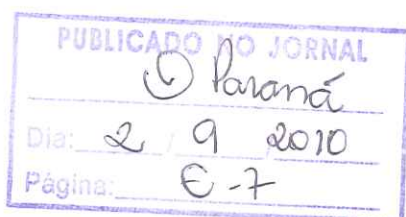 PUBLICADO NO JORNAL
O Paraná
Dia: 2 / 9 2010
Página: E-7